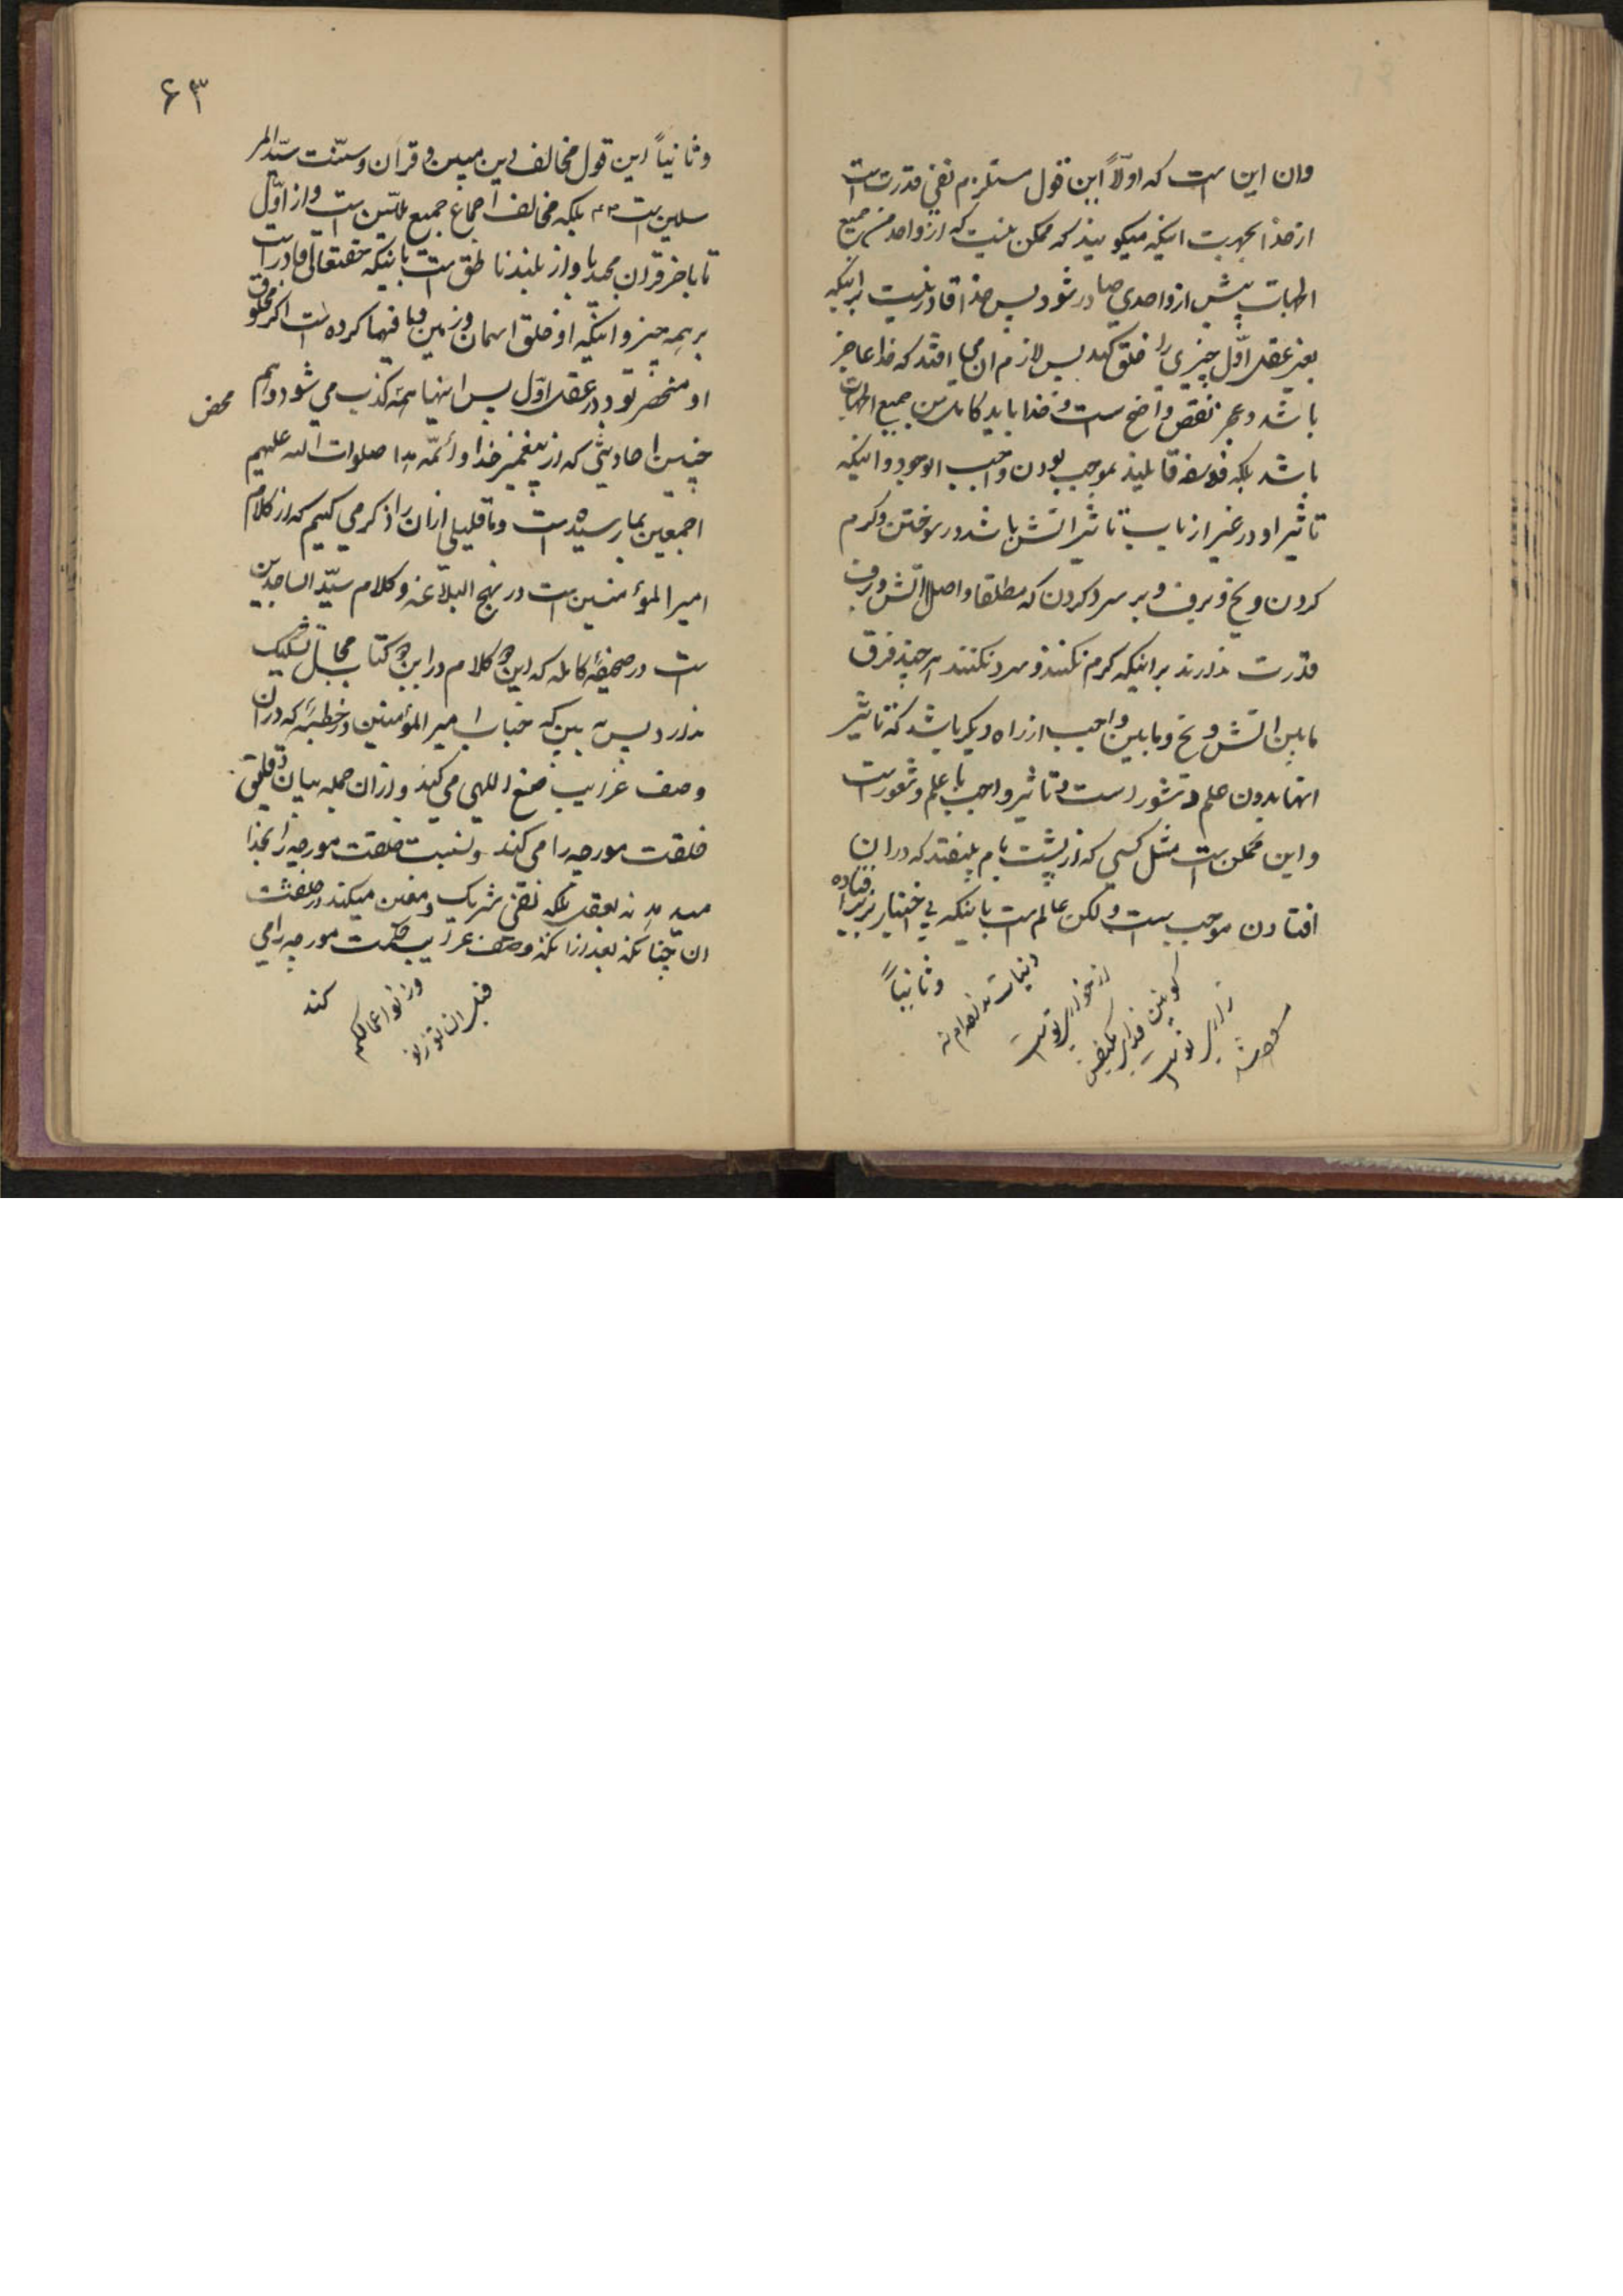 وان این است که اولاً این قول مستلزم نفی قدرت است
از خدا بجهت اینکه میگویند که ممکن نیست که از واحد من جمیع
الجهات بیش از واحدی صادر شود پس خدا قادر نیست برانیکه
بغیر عقل اوّل چیزی را خلق کند پس لازم ان می افتد که خدا عاجز
باشد و عجز نقص واضح است و خدا باید کامل من جمیع الجهات
باشد بلکه فلاسفه قایلند بموجب بودن واجب الوجود و اینکه
تاثیر او در غیر از باب تاثیر اتش باشد در سوختن و کرم
کردن و یخ و برف و بر سرد کردن که مطلقا و اصلا اتش و برف
قدرت ندارند برانیکه کرم نکنند و سرد نکنند هر چند فرق
مابین اتش و یخ و مابین واجب از راه دیکر باشد که تاثیر
انها بدون علم و شعور است و تاثیر واجب با علم و شعور است
و این ممکن است مثل کسی که از پشت بام بیفتد که در ان
افتادن موجب است و لکن عالم است باینکه بی اختیار بزیر افتاده
وثانیاً
۶۳
وثانیاً این قول مخالف دین مبین و قران و سنّت سیّد المر
سلین است بلکه مخالف اجماع جمیع ملّیین است و از اوّل
تا باخر قران مجید باواز بلند ناطق است باینکه حقتعالی قادر است
بر همه چیز و اینکه او خلق اسمان و زمین و ما فیها کرده است اکر مخلوق
او منحصر بود در عقل اوّل پس اینها همه کذب می شود و هم
محض
چنین احادیثی که از پیغمبر خدا و ائمّه هدا صلوات الله علیهم
اجمعین بما رسیده است و ما قلیلی از ان را ذکر می کنیم که از کلام
امیر المؤمنین است در نهج البلاغه و کلام سیّد الساجدین
است در صحیفهٔ کامله که این دو کلام در این دو کتاب محل تشکیک
ندارد پس به بین که جناب امیر المؤمنین در خطبهٔ که در ان
وصف غرایب صنع اللهی می کند و از ان جمله بیان دقایق
خلقت مورچه را می کند و نسبت خلقت مورچه را بخدا
میدهد نه بعقل بلکه نفی شریک و معین میکند در خلقت
ان چنانکه بعد از انکه وصف غرایب حکمت مورچه را می
کند
وزنوا اعمالکم
قبل ان توزنوا